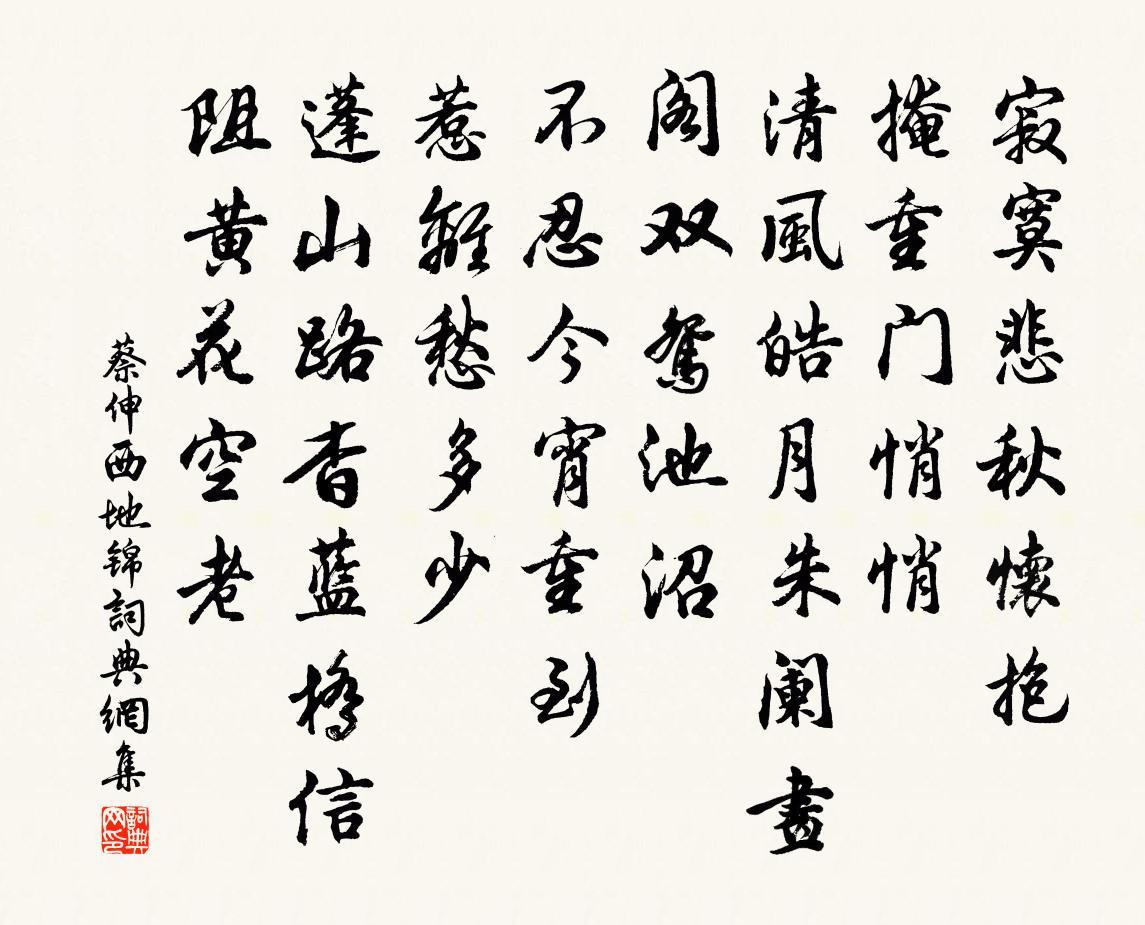 寂寞悲秋懷抱
掩重门悄悄
清風皓月朱阑畫
阁双鴛池沼
不忍今宵重到
惹離愁多少
蓬山路杳藍橋信
阻黄花空老
蔡伸西地锦詞典網集
詞典网印